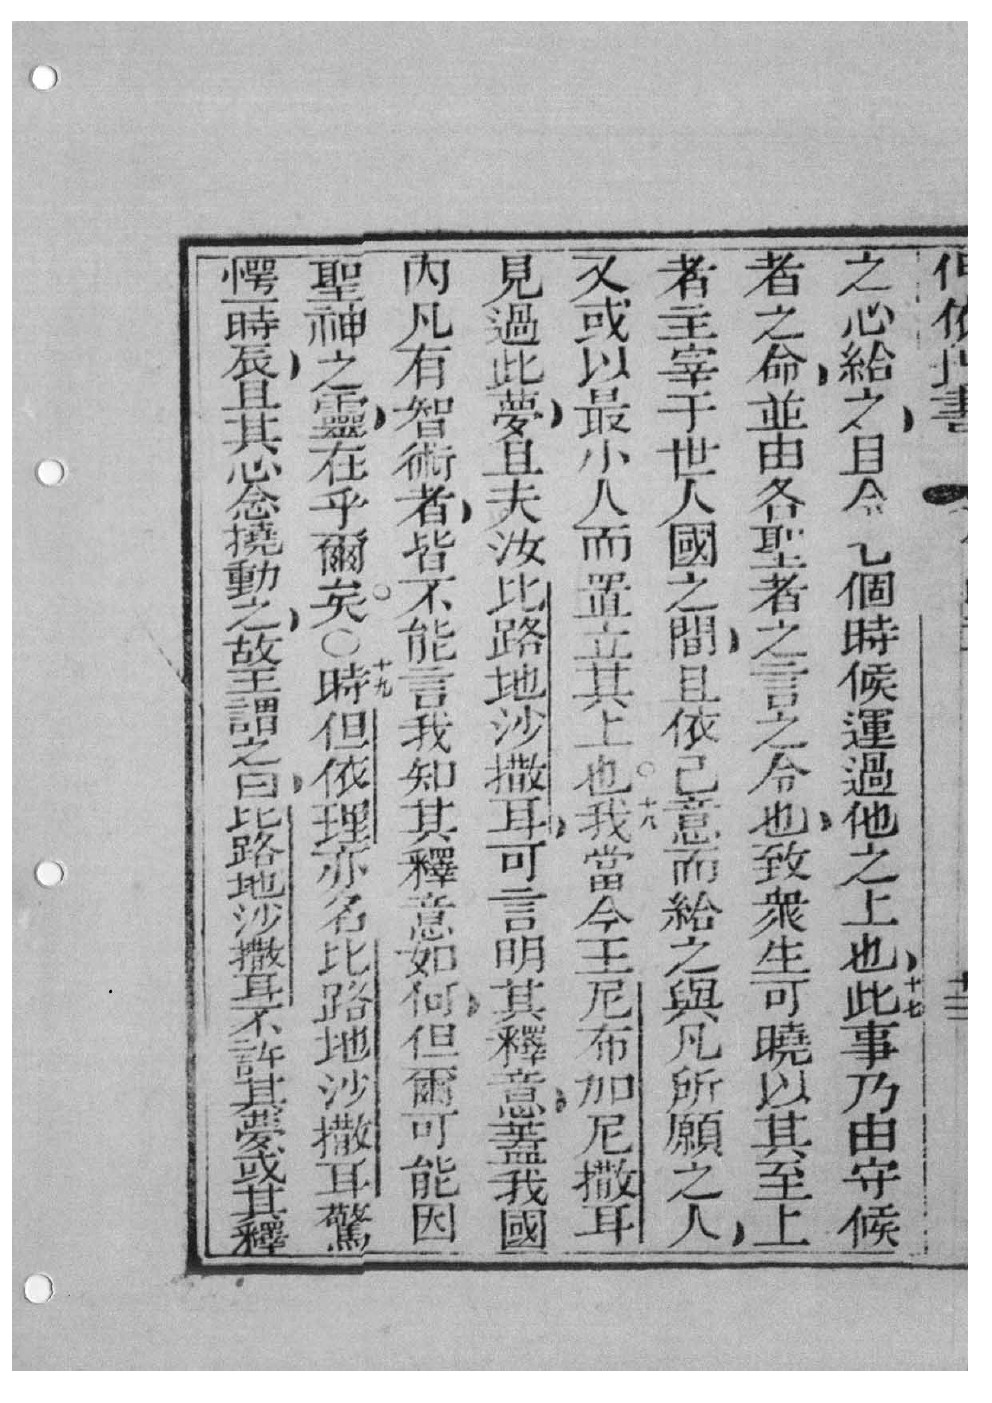 但依理書
之心給之且令七個時候運過他之上也十七此事乃由守候
者之命並由各聖者之言之令也致衆生可曉以其至上
者主宰于世人國之間且依己意而給之與凡所願之人
又或以最小人而置立其上也○十八我當今王尼布加尼撒耳
見過此夢且夫汝比路地沙撒耳可言明其釋意蓋我國
內凡有智術者皆不能言我知其釋意如何但爾可能因
聖神之靈在乎爾矣○○十九時但依理亦名比路地沙撒耳驚
愕一時辰且其心念撓動之故王謂之曰比路地沙撒耳不許其夢或其釋